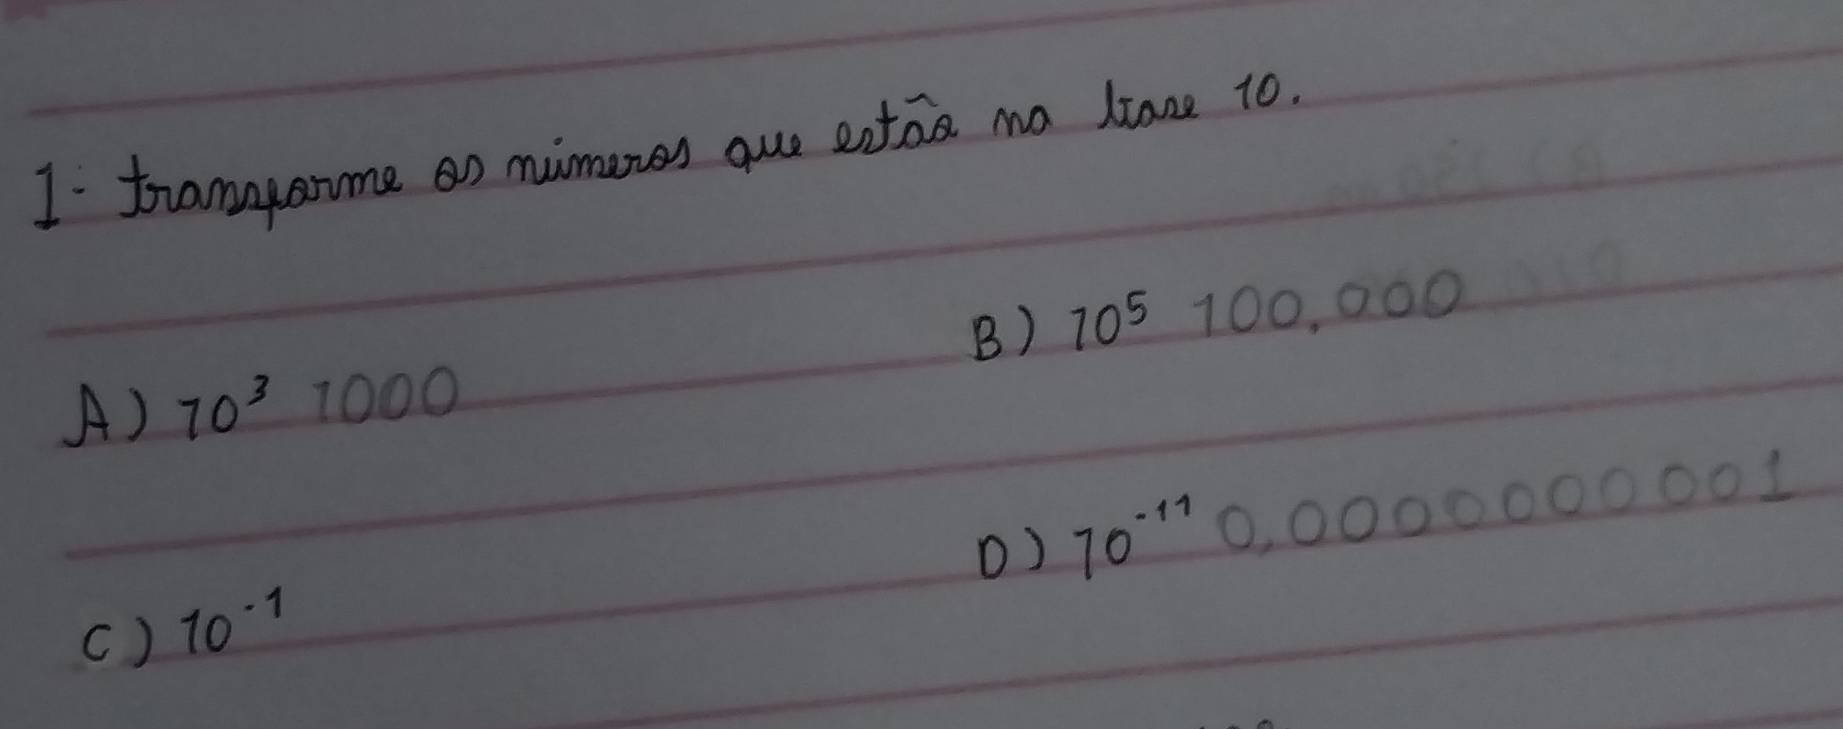 1- transforme os números que estão na base 10.
A) 10³ 1000
B) 10⁵ 100.000
C) 10⁻¹
D) 10⁻¹¹ 0,0000000001